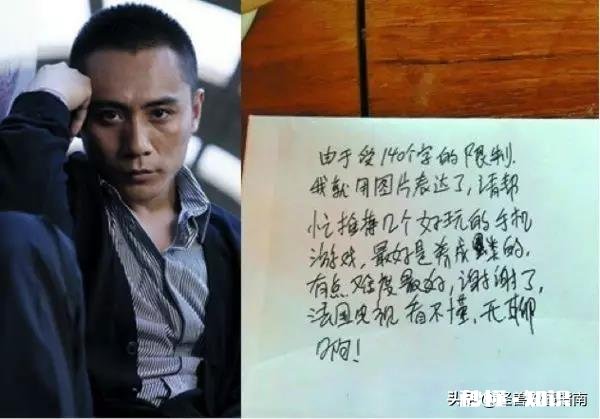 由于受140个字的限制.
我就用图片表达了,请帮
忙推荐几个好玩的手机
游戏,最好是养成类的.
有点难度最好,谢谢了,
法国电视看不懂,无聊
啊!
头条
指南